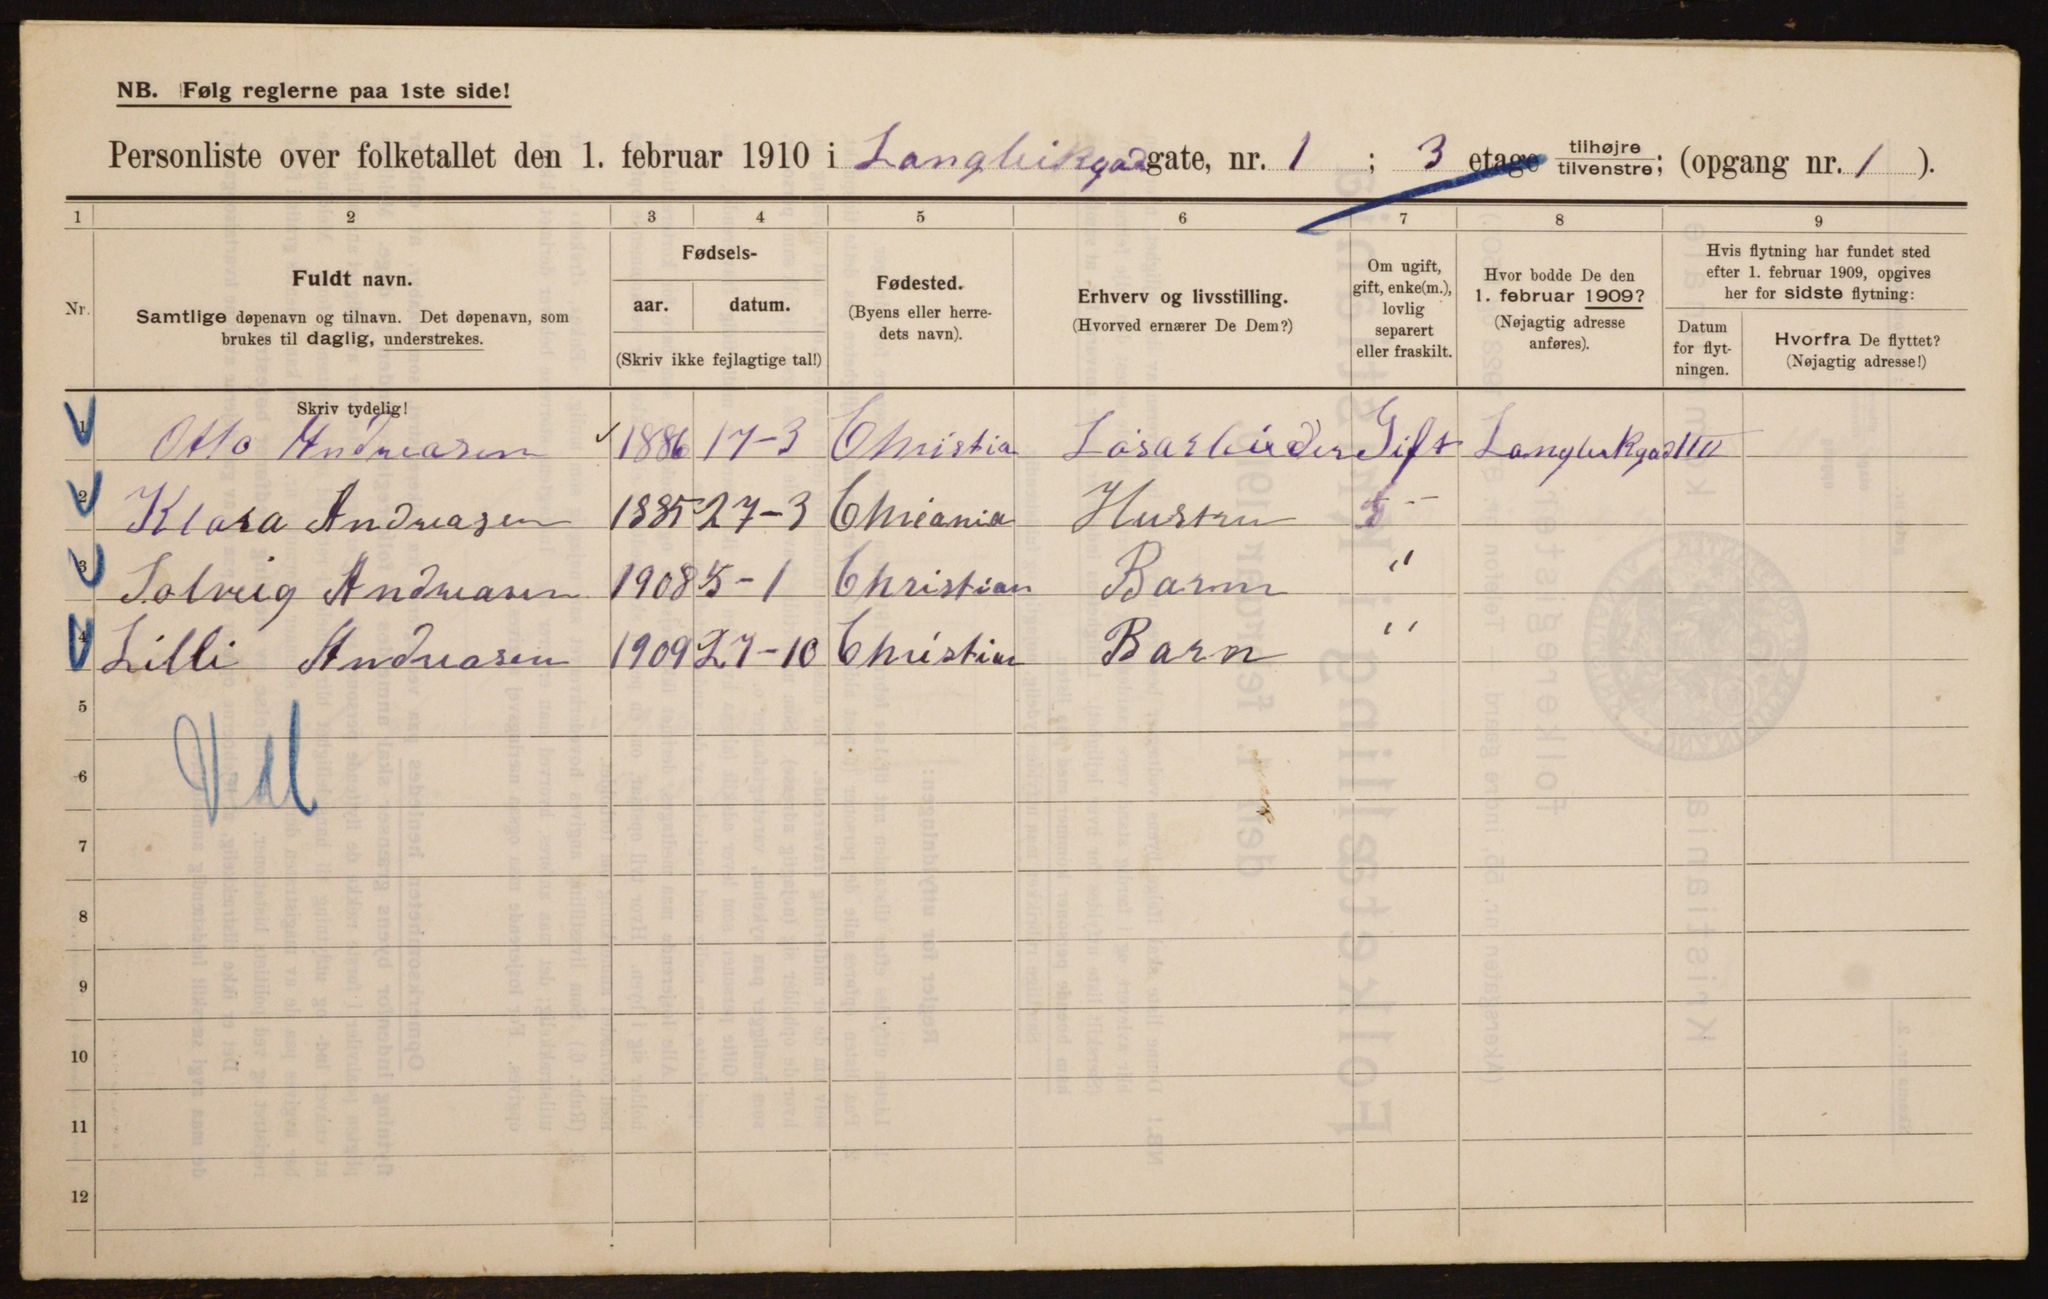 NB. Følg reglerne paa 1ste side!
Personliste over folketallet den 1. februar 1910 i Langleikgad gate, nr. 1 ; 3 etage tilhøjre tilvenstre; (opgang nr. 1 ).
1 2 3 4 5 6 7 8 9
Nr.
Fuldt navn.
Samtlige døpenavn og tilnavn. Det døpenavn, som
brukes til daglig, understrekes.
Fødsels-
aar. datum.
(Skriv ikke fejlagtige tal!)
Fødested.
(Byens eller herre-
dets navn).
Erhverv og livsstilling.
(Hvorved ernærer De Dem?)
Om ugift,
gift, enke(m.),
lovlig
separert
eller fraskilt.
Hvor bodde De den
1. februar 1909?
(Nøjagtig adresse
anføres).
Hvis flytning har fundet sted
efter 1. februar 1909, opgives
her for sidste flytning:
Datum
for flyt-
ningen.
Hvorfra De flyttet?
(Nøjagtig adresse!)
Skriv tydelig!
1 Otto Andreasen 1886 17-3 Christia Løsarbeider Gift
2 Klara Andreasen 1885 27-3 Chrieania Hustru
3 Solveig Andreasen 1908 5-1 Christian Barn "
4 Lilli Andreasen 1909 27-10 Christian Barn "
5
6
7
8
9
10
11
12